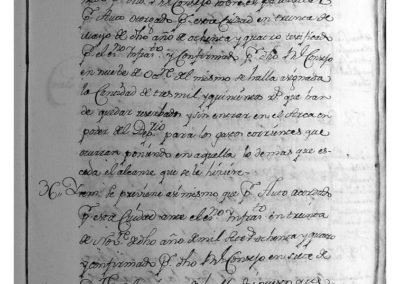 p.r Auto acordado p.r esta Ciudad en treinta de
Mayo de dho año de ochenta y quatro testificado
p.r el ess.no infras.to y confirmado p.r dho R.l Consejo
en nuebe de Oct.e del mismo se halla asignada
la Cantidad de tres mil y quinientos r.s que han
de quedar reserbados y sin entrar en el Arca en
poder del Dep.rio para los gastos corrientes que
ocurran poniendo en aquella lo demas que es-
ceda el alcance que se le hiciere.
Item: se previene asi mismo que p.r Auto acordado
p.r esta Ciudad ante el ess.no infras.to en treinta
de Nov.e de dho año de mil setec.s ochenta y quatro
y confirmado p.r dho R.l Consejo en siete de